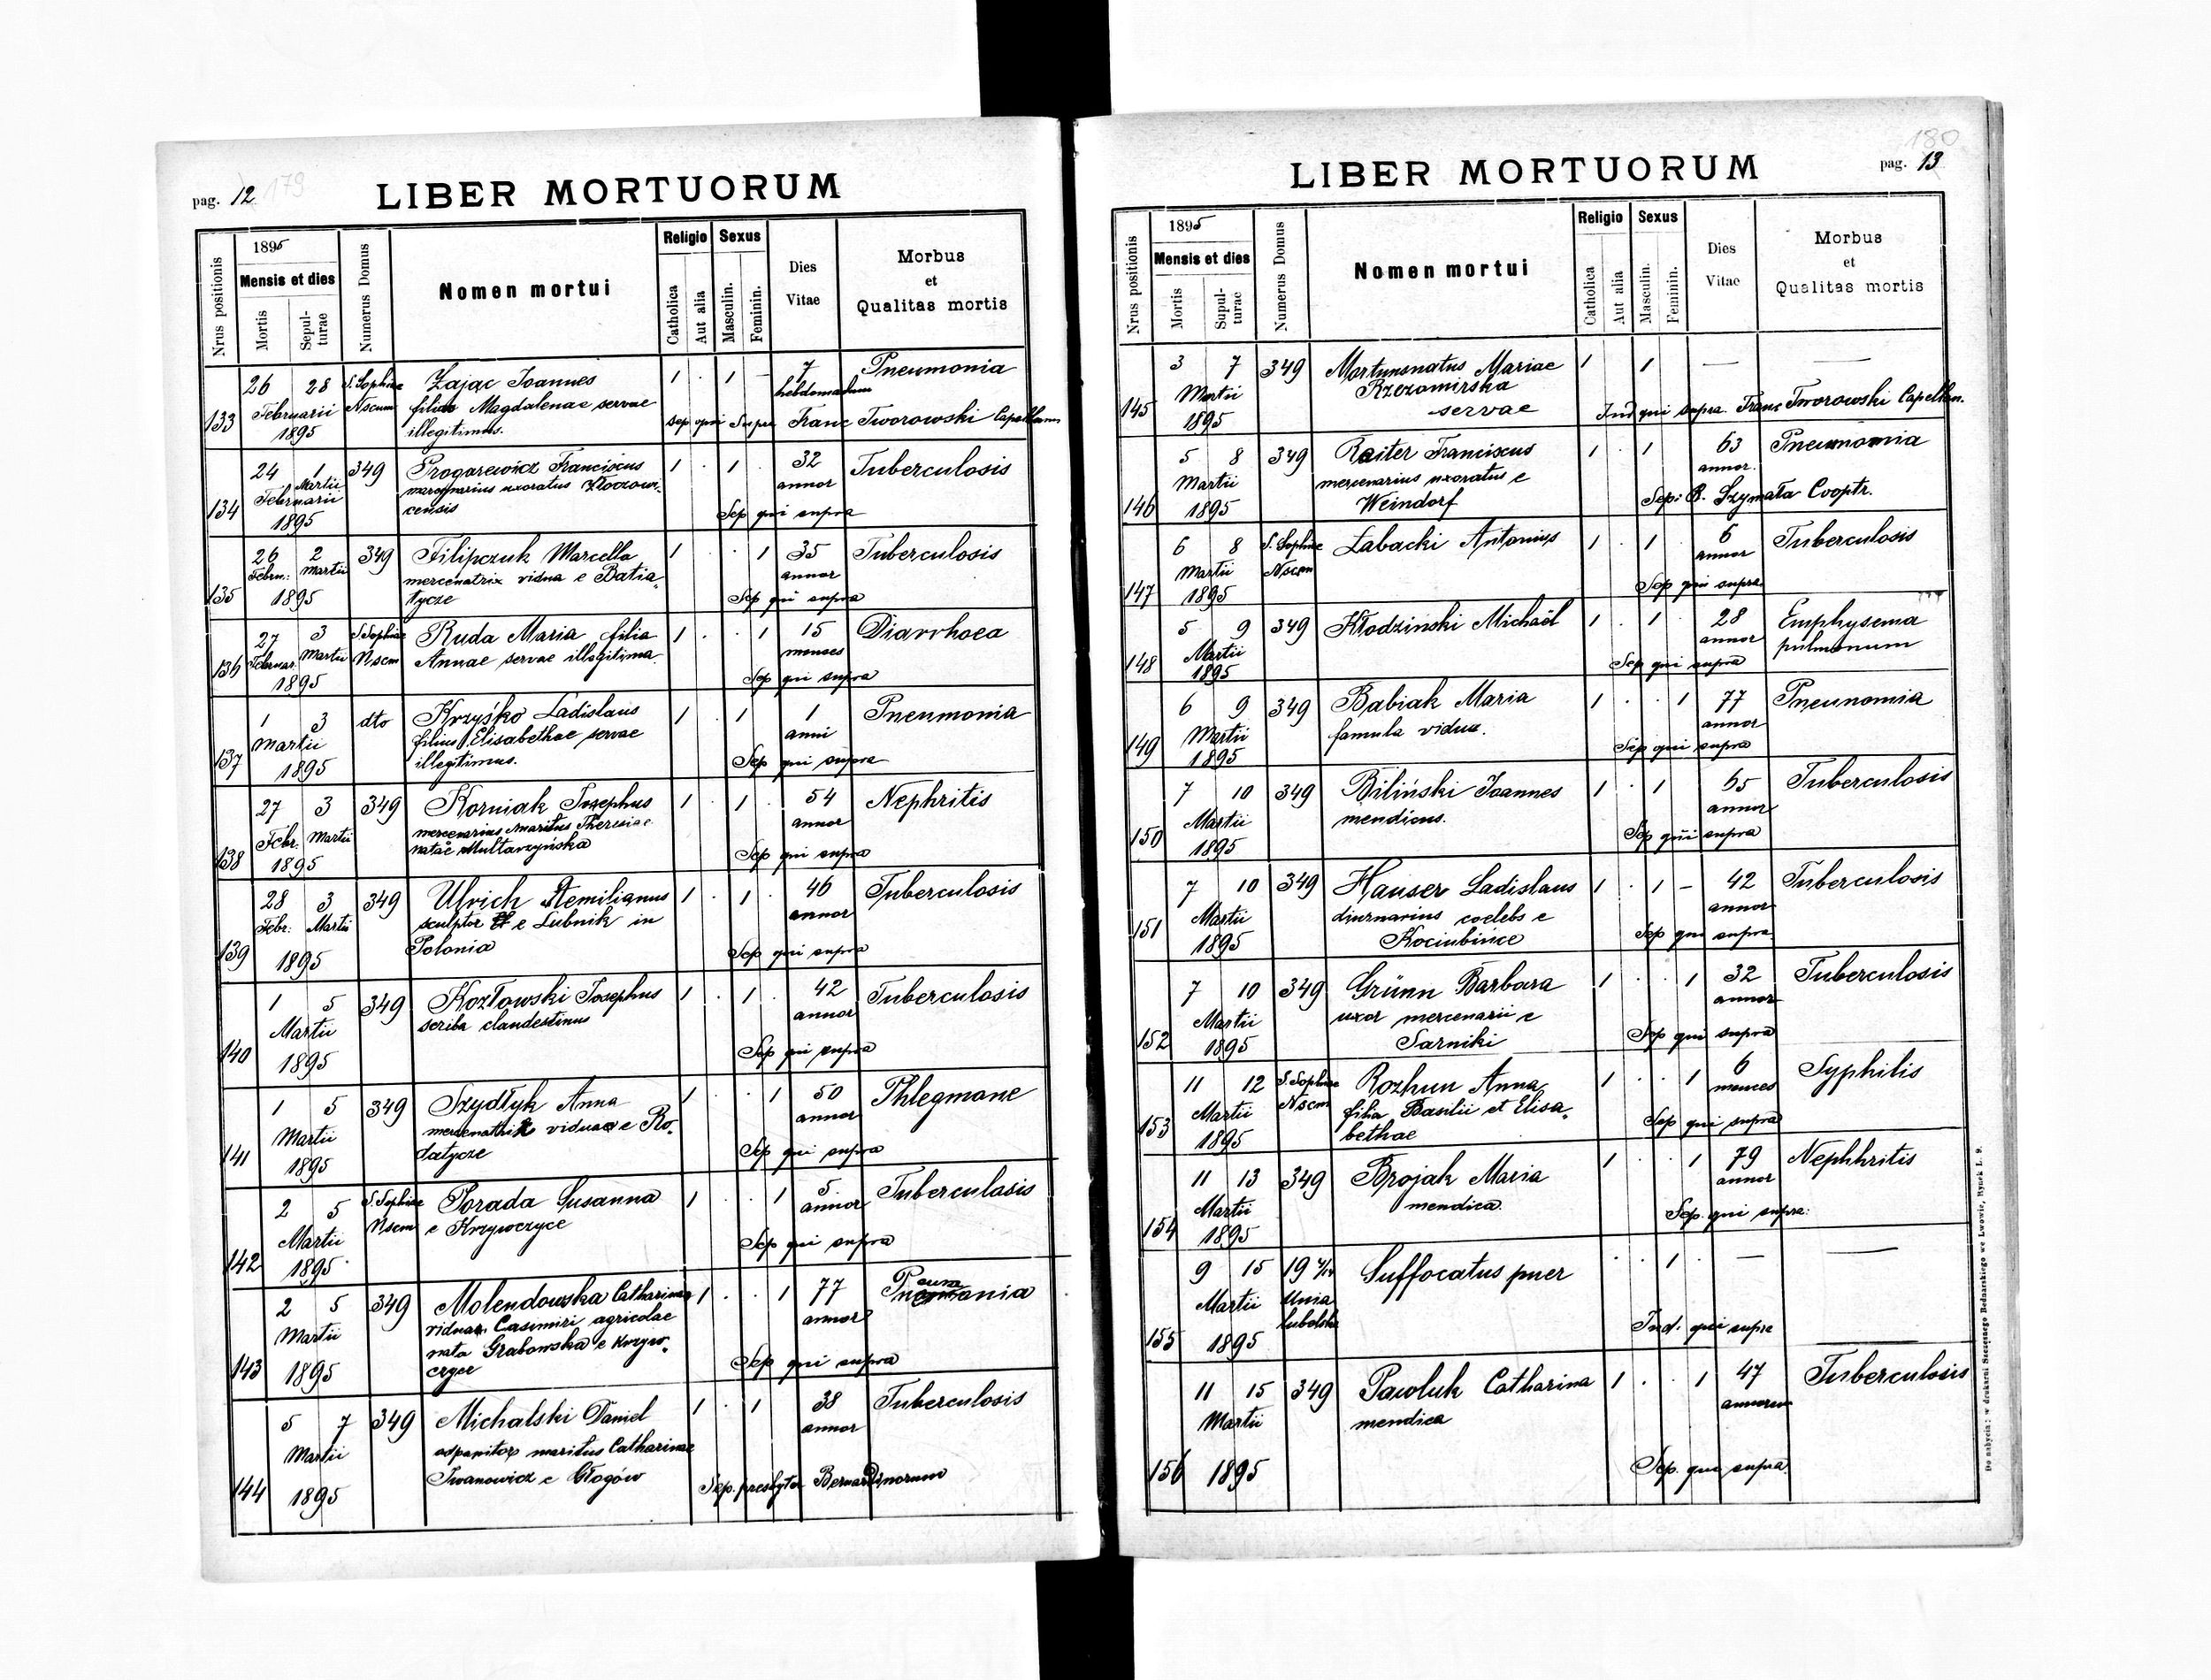 pag. 12 179
LIBER MORTUORUM
Nrus positionis
1895
Mensis et dies
Mortis
Sepulturae
Numerus Domus
Nomen mortui
Religio
Catholica
Aut alia
Sexus
Masculin.
Feminin.
Dies
Vitae
Morbus
et
Qualitas mortis
133 26 28 S. Sophiae Zając Joannes 1 . 1 - 7 Pneumonia
Februarii Nscum filius Magdalenae servae hebdomadum
1895 illegitimus. Sep qui Supra Franc Tworowski Capellanus
134 24 1 349 Progarewicz Franciscus 1 . 1 . 32 Tuberculosis
Martii mercenarius uxoratus Kłoczowi-
Februarii censis annor
1895 Sep qui supra
135 26 2 349 Filipczuk Marcella 1 . . 1 35 Tuberculosis
Febru: Martii mercenatrix vidua e Batia- annor
1895 tycze Sep qui supra
136 27 3 S Sophiae Ruda Maria filia 1 . . 1 15 Diarrhoea
Februar. Martii Nscm Annae servae illegitima. menses
1895 Sep qui supra
137 1 3 dto Krzyśko Ladislaus 1 . 1 1 Pneumonia
Martii filius Elisabethae servae anni
1895 illegitimus. Sep qui supra
138 27 3 349 Korniak Josephus 1 . 1 . 54 Nephritis
Febr. Martii mercenarius maritus Theresiae annor
1895 natae Multarzyńska Sep qui supra
139 28 3 349 Ulrich Aemilianus 1 . 1 . 46 Tuberculosis
Febr: Martii sculptor e Lubnik in annor
1895 Polonia Sep qui supra
140 1 5 349 Kozłowski Josephus 1 . 1 . 42 Tuberculosis
Martii scriba clandestinus annor
1895 Sep qui supra
141 1 5 349 Szydłyk Anna 1 . . 1 50 Phlegmone
Martii mercenatrix viduae e Ro- annor
1895 datycze Sep qui supra
142 2 5 S. Sophiae Porada Susanna 1 . . 1 5 Tuberculosis
Martii Nscm e Krzywczyce annor
1895 Sep qui supra
143 2 5 349 Molendowska Catharina 1 . . 1 77 Pneumonia
Martii vidua Casimiri agricolae annor
1895 nata Grabowska e Krzyw-
czyce Sep qui supra
144 5 7 349 Michalski Daniel 1 . 1 38 Tuberculosis
Martii maritus Catharinae annor
1895 Iwanowicz e Głogów Sep. presbyter Bernardinorum
180
pag. 13
LIBER MORTUORUM
Nrus positionis
1895
Mensis et dies
Mortis
Supulturae
Numerus Domus
Nomen mortui
Religio
Catholica
Aut alia
Sexus
Masculin.
Feminin.
Dies
Vitae
Morbus
et
Qualitas mortis
145 3 7 349 Mortuusnatus Mariae 1 1 — —
Martii Rzezomirska
1895 servae Ind qui supra. Franc Tworowski Capellan.
146 5 8 349 Raiter Franciscus 1 . 1 63 Pneumonia
Martii mercenarius uxoratus e annor.
1895 Weindorf Sep: B. Szymata Cooptr.
147 6 8 S. Sophiae Łabacki Antonius 1 . 1 . 6 Tuberculosis
Martii Nscm annor
1895 Sep qui supra
148 5 9 349 Kłodzinski Michaël 1 . 1 . 28 Emphysema
Martii annor pulmonum
1895 Sep qui supra
149 6 9 349 Babiak Maria 1 . . 1 77 Pneunomia
Martii famula vidua. annor
1895 Sep qui supra
150 7 10 349 Biliński Joannes 1 . 1 65 Tuberculosis
Martii mendicus. annor
1895 Sep qui supra
151 7 10 349 Hauser Ladislaus 1 . 1 - 42 Tuberculosis
Martii diurnarius coelebs e annor
1895 Kociubińce Sep qui supra
152 7 10 349 Grünn Barbara 1 . . 1 32 Tuberculosis
Martii uxor mercenarii e annor
1895 Sarniki Sep qui supra
153 11 12 S. Sophiae Rozhun Anna 1 . . 1 6 Syphilis
Martii Nscm filia Basilii et Elisa- menses
1895 bethae Sep qui supra
154 11 13 349 Brojak Maria 1 . 1 79 Nephhritis
Martii mendica. annor
1895 Sep. qui supra:
155 9 15 19 Suffocatus puer . 1 . — —
Martii Unia
1895 Lubelska Ind. qui supra
156 11 15 349 Pawluk Catharina 1 . . 1 47 Tuberculosis
Martii mendica annorum
1895 Sep. qui supra.
Do nabycia: w drukarni Szczęsnego Bednarskiego we Lwowie, Rynek L. 9.